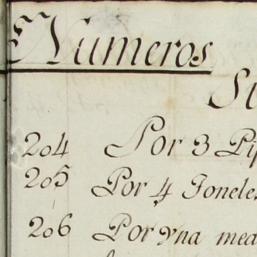 Numeros
204 Por 3 Pip
205 Por 4 Tonele
206 Por vna med